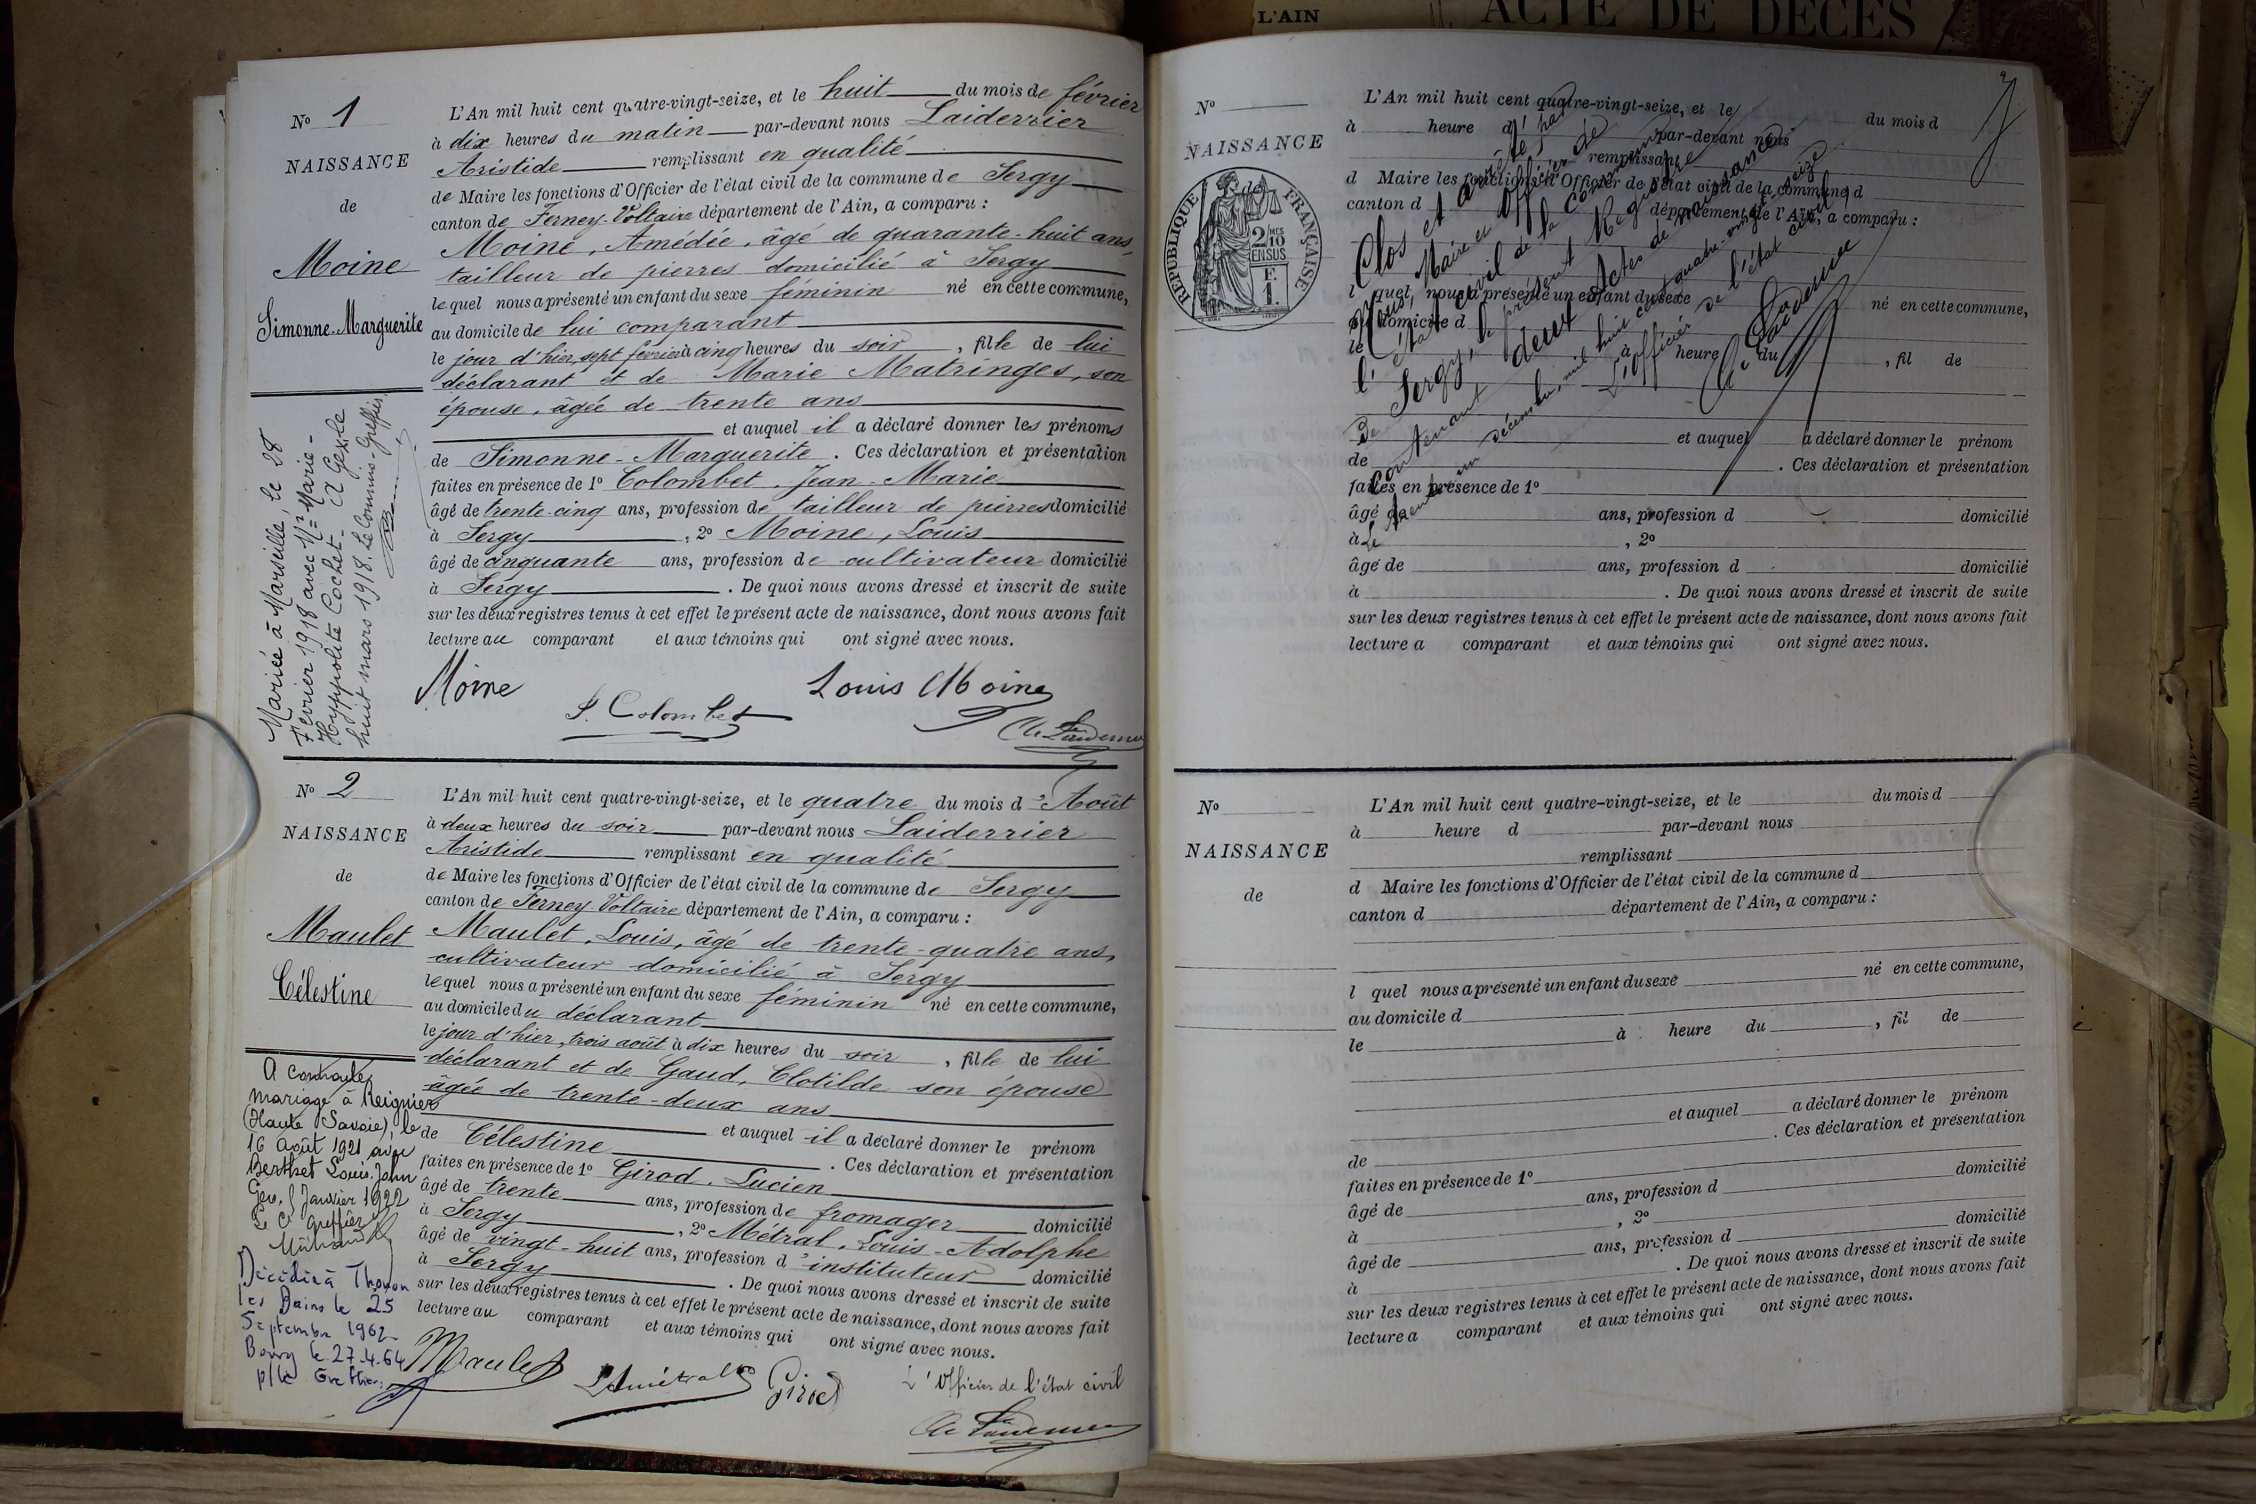 L'AIN
ACTE DE DÉCÈS
No 1
NAISSANCE
de
Moine
Simonne-Marguerite
Mariée à Marseille, le 28
Février 1918 avec Mr Marie-
Hyppolite Cochet- A Gex, le
huit mars 1918. Le Commis-Greffier,
L'An mil huit cent quatre-vingt-seize, et le huit du mois de février
à dix heures du matin par-devant nous Laiderrier
Aristide remplissant en qualité
de Maire les fonctions d'Officier de l'état civil de la commune de Sergy
canton de Ferney-Voltaire département de l'Ain, a comparu :
Moine, Amédée, âgé de quarante-huit ans,
tailleur de pierres domicilié à Sergy
lequel nous a présenté un enfant du sexe féminin né en cette commune,
au domicile de lui comparant
le jour d'hier, sept février à cinq heures du soir, fille de lui
déclarant et de Marie Matringes, son
épouse, âgée de trente ans
et auquel il a déclaré donner les prénoms
de Simonne-Marguerite. Ces déclaration et présentation
faites en présence de 1º Colombet, Jean-Marie
âgé de trente-cinq ans, profession de tailleur de pierres domicilié
à Sergy, 2º Moine, Louis
âgé de cinquante ans, profession de cultivateur domicilié
à Sergy. De quoi nous avons dressé et inscrit de suite
sur les deux registres tenus à cet effet le présent acte de naissance, dont nous avons fait
lecture au comparant et aux témoins qui ont signé avec nous.
Moine
Louis Moine
J. Colombet
No 2
NAISSANCE
de
Maulet
Célestine
A contracté
mariage à Reignier
(Haute Savoie), le
16 Août 1921 avec
Berthet Louis John
Gex, 8 Janvier 1922
Le Cs greffier
Décédée à Thonon
les Bains le 25
Septembre 1962
Bourg le 27.4.64
p/le Greffier:
L'An mil huit cent quatre-vingt-seize, et le quatre du mois d'Août
à deux heures du soir par-devant nous Laiderrier
Aristide remplissant en qualité
de Maire les fonctions d'Officier de l'état civil de la commune de Sergy
canton de Ferney-Voltaire département de l'Ain, a comparu :
Maulet, Louis, âgé de trente-quatre ans,
cultivateur domicilié à Sergy
lequel nous a présenté un enfant du sexe féminin né en cette commune,
au domicile du déclarant
le jour d'hier, trois août à dix heures du soir, fille de lui
déclarant et de Gaud, Clotilde son épouse
âgée de trente-deux ans
et auquel il a déclaré donner le prénom
de Célestine. Ces déclaration et présentation
faites en présence de 1º Girod, Lucien
âgé de trente ans, profession de fromager domicilié
à Sergy, 2º Métral, Louis-Adolphe
âgé de vingt-huit ans, profession d'instituteur domicilié
à Sergy. De quoi nous avons dressé et inscrit de suite
sur les deux registres tenus à cet effet le présent acte de naissance, dont nous avons fait
lecture au comparant et aux témoins qui ont signé avec nous.
Maulet
LAmétral
Girod
L'Officier de l'état civil
No
NAISSANCE
de
RÉPUBLIQUE FRANÇAISE
2 MES
10
EN SUS
F.
1.
L'An mil huit cent quatre-vingt-seize, et le du mois d
à heure d par-devant nous
remplissant
d Maire les fonctions d'Officier de l'état civil de la commune d
canton d département de l'Ain, a comparu :
l quel nous a présenté un enfant du sexe né en cette commune,
au domicile d
le à heure du , fil de
et auquel a déclaré donner le prénom
de . Ces déclaration et présentation
faites en présence de 1º
âgé de ans, profession d domicilié
à , 2º
âgé de ans, profession d domicilié
à . De quoi nous avons dressé et inscrit de suite
sur les deux registres tenus à cet effet le présent acte de naissance, dont nous avons fait
lecture a comparant et aux témoins qui ont signé avec nous.
Clos et arrêté par
Nous, Maire et Officier de
l'état civil de la Commune de
Sergy, le présent Registre
contenant deux Actes de naissance
Le trente un décembre, mil huit cent quatre-vingt-seize
L'Officier de l'état civil,
No
NAISSANCE
de
L'An mil huit cent quatre-vingt-seize, et le du mois d
à heure d par-devant nous
remplissant
d Maire les fonctions d'Officier de l'état civil de la commune d
canton d département de l'Ain, a comparu :
l quel nous a présenté un enfant du sexe né en cette commune,
au domicile d
le à heure du , fil de
et auquel a déclaré donner le prénom
de . Ces déclaration et présentation
faites en présence de 1º
âgé de ans, profession d domicilié
à , 2º
âgé de ans, profession d domicilié
à . De quoi nous avons dressé et inscrit de suite
sur les deux registres tenus à cet effet le présent acte de naissance, dont nous avons fait
lecture a comparant et aux témoins qui ont signé avec nous.